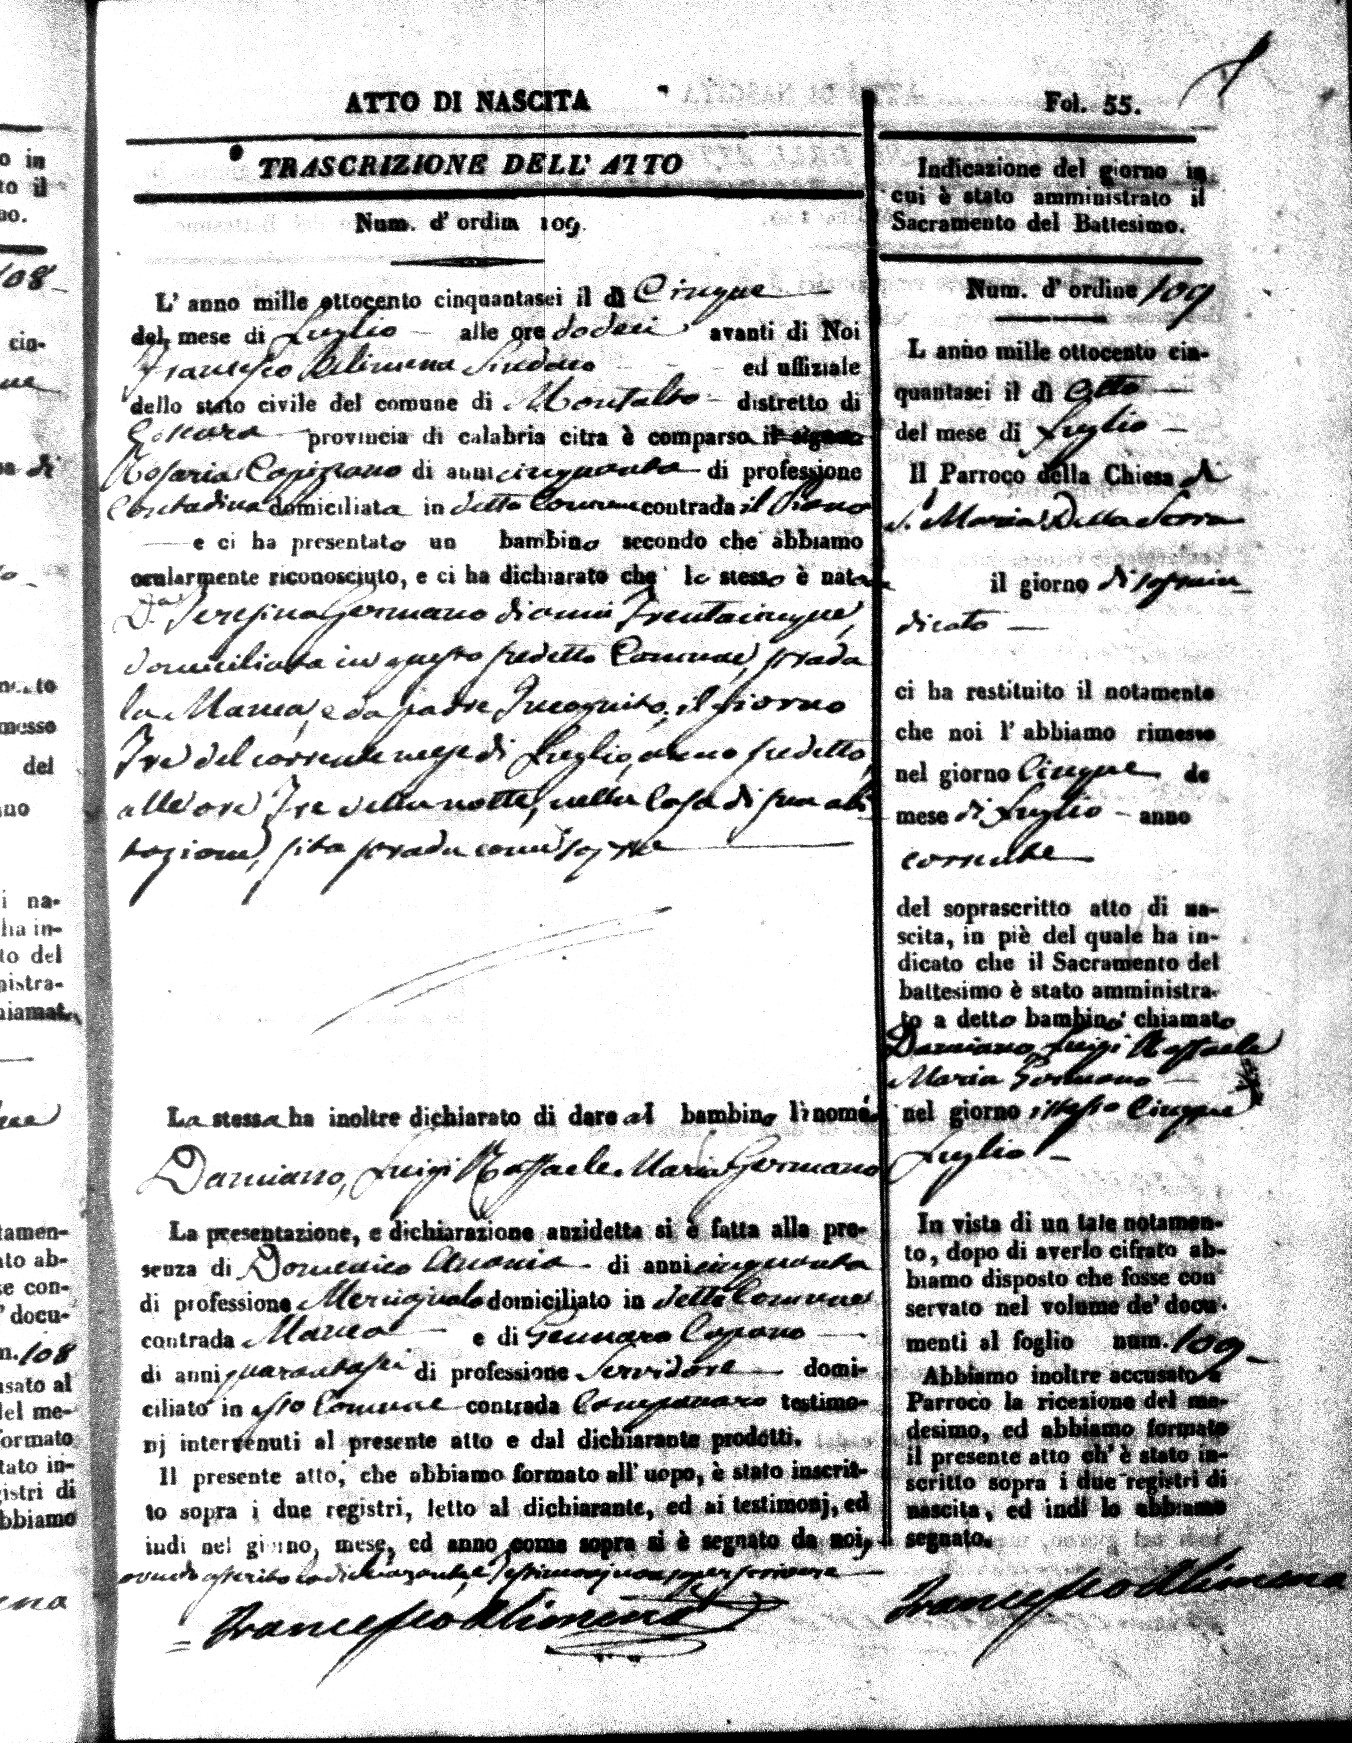 ATTO DI NASCITA
Fol. 55.
TRASCRIZIONE DELL' ATTO
Num. d' ordin 109.
L' anno mille ottocento cinquantasei il dì Cinque
del mese di Luglio alle ore dodeci avanti di Noi
Francesco Alimena Sindaco ed uffiziale
dello stato civile del comune di Montalto distretto di
Cosenza provincia di calabria citra è comparsa il signor
Rosaria di anni cinquanta di professione
Contadina domiciliata in detto Comune contrada il Piano
e ci ha presentato un bambino secondo che abbiamo
ocularmente riconosciuto, e ci ha dichiarato che lo stesso è nato
Da Teresina Germano di anni Trentacinque,
domiciliata in questo sudetto Comune, strada
la Manca, e da padre Incognito, il giorno
Tre del corrente mese di Luglio, anno sudetto,
alle ore Tre della notte, nella Casa di sua abi
tazione, sita strada come sopra
La stessa ha inoltre dichiarato di dare al bambino li nomi
Damiano, Luigi Raffaele Maria Germano
La presentazione, e dichiarazione anzidetta si è fatta alla pre-
senza di Domenico Anania di anni cinquanta
di professione domiciliato in detto Comune
contrada Manca e di Gennaro Capano
di anni quarantasei di professione Servidore domi-
ciliato in esso Comune contrada Campanaro testimo-
nj intervenuti al presente atto e dal dichiarante prodotti.
Il presente atto, che abbiamo formato all' uopo, è stato inscrit-
to sopra i due registri, letto al dichiarante, ed ai testimonj, ed
indi nel giorno, mese, ed anno come sopra si è segnato da noi,
avendo asserito la dichiarante, e Testimonj non saper scrivere
Francesco Alimena
Indicazione del giorno in
cui è stato amministrato il
Sacramento del Battesimo.
Num. d' ordine 109
L anno mille ottocento cin-
quantasei il dì Otto
del mese di Luglio
Il Parroco della Chiesa di
S. Maria Della Serra
il giorno di sopra in
dicato
ci ha restituito il notamento
che noi l' abbiamo rimesso
nel giorno Cinque de
mese di Luglio anno
corrente
del soprascritto atto di na-
scita, in piè del quale ha in-
dicato che il Sacramento del
battesimo è stato amministra-
to a detto bambino chiamato
Damiano, Luigi Raffaele
Maria Germano
nel giorno istesso Cinque
Luglio
In vista di un tale notamen-
to, dopo di averlo cifrato ab-
biamo disposto che fosse con
servato nel volume de' docu-
menti al foglio num. 109
Abbiamo inoltre accusato a
Parroco la ricezione del me-
desimo, ed abbiamo formato
il presente atto ch' è stato in-
scritto sopra i due registri di
nascita, ed indi lo abbiamo
segnato.
Francesco Alimena